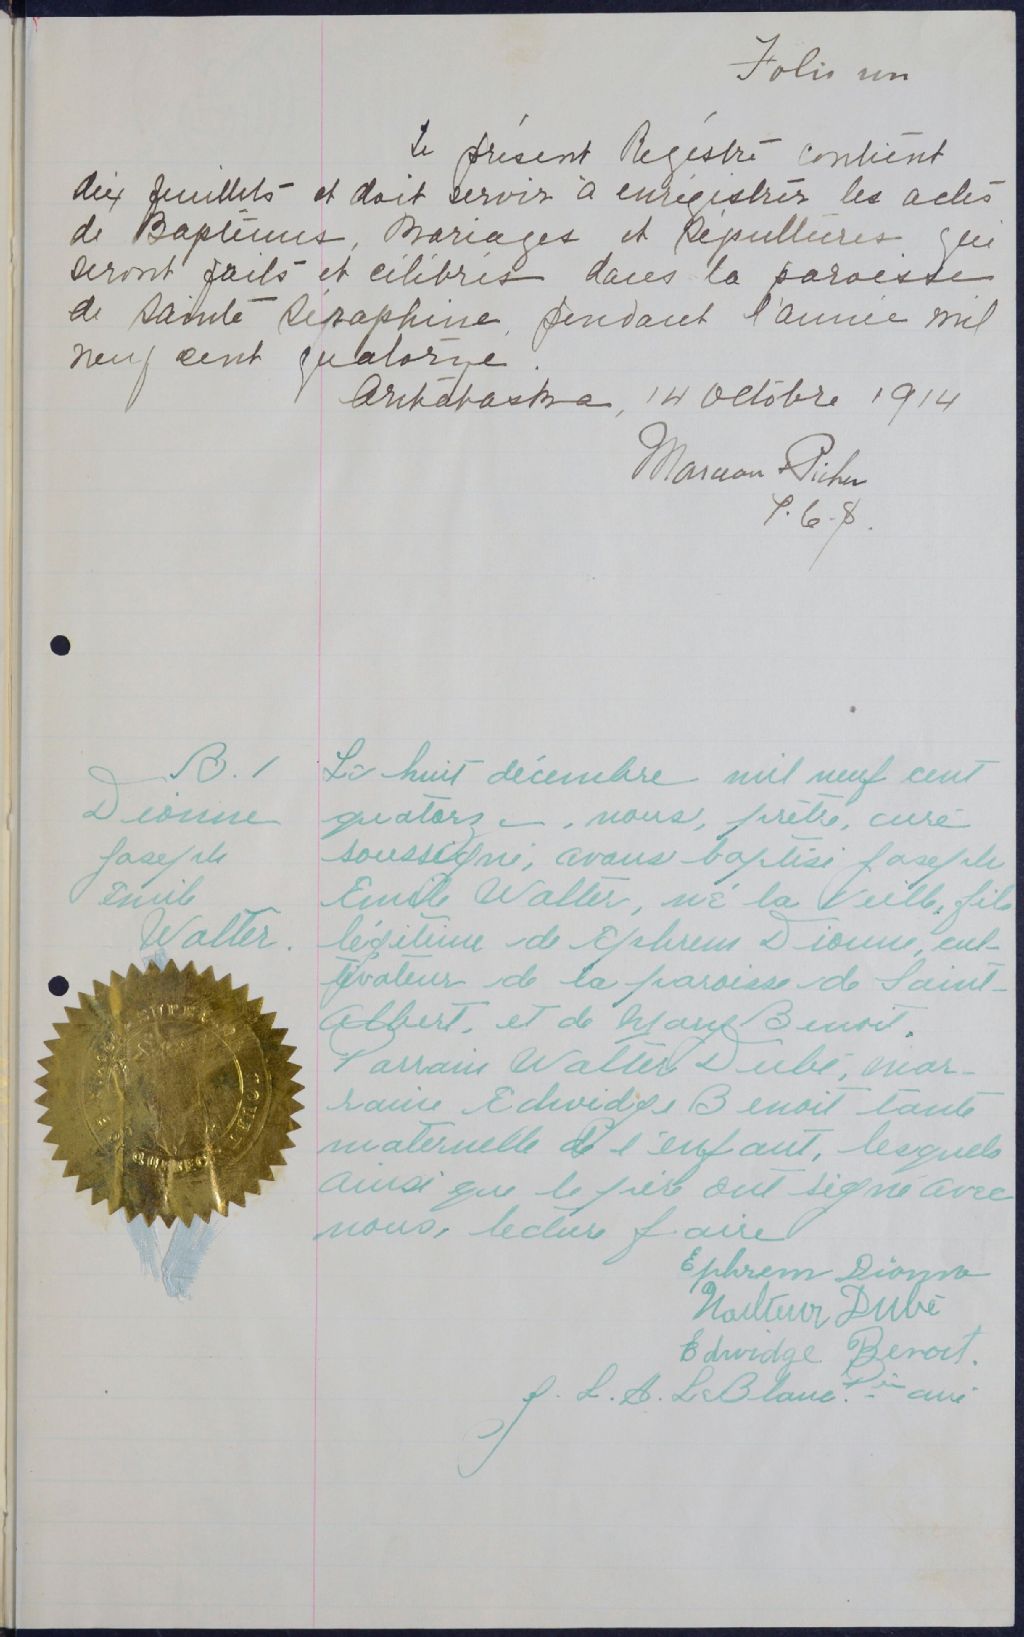 Folio un
Le présent Régistre contient
dix feuillets et doit servir à enrégistrer les actes
de Baptêmes, Mariages et Sépultures qui
seront faits et célébrés dans la paroisse
de Sainte Séraphine, pendant l'année mil
neuf cent quatorze.
Arthabaska, 14 Octobre 1914
Picher
B. 1
Dionne
Joseph
Emile
Walter.
Le huit décembre mil neuf cent
quatorze, nous, prêtre, curé
soussigné, avons baptisé Joseph
Emile Walter, né la veille, fils
légitime de Ephrem Dionne, cul-
tivateur de la paroisse de Saint-
Albert, et de Mary Benoit.
Parrain Walter Dubé, mar-
raine Edwidge Benoit tante
maternelle de l'enfant, lesquels
ainsi que le père ont signé avec
nous, lecture faite
Ephrem Dionne
Dubé
Edwidge Benoit.
J. L. A. LeBlanc Ptre curé
QUEBEC